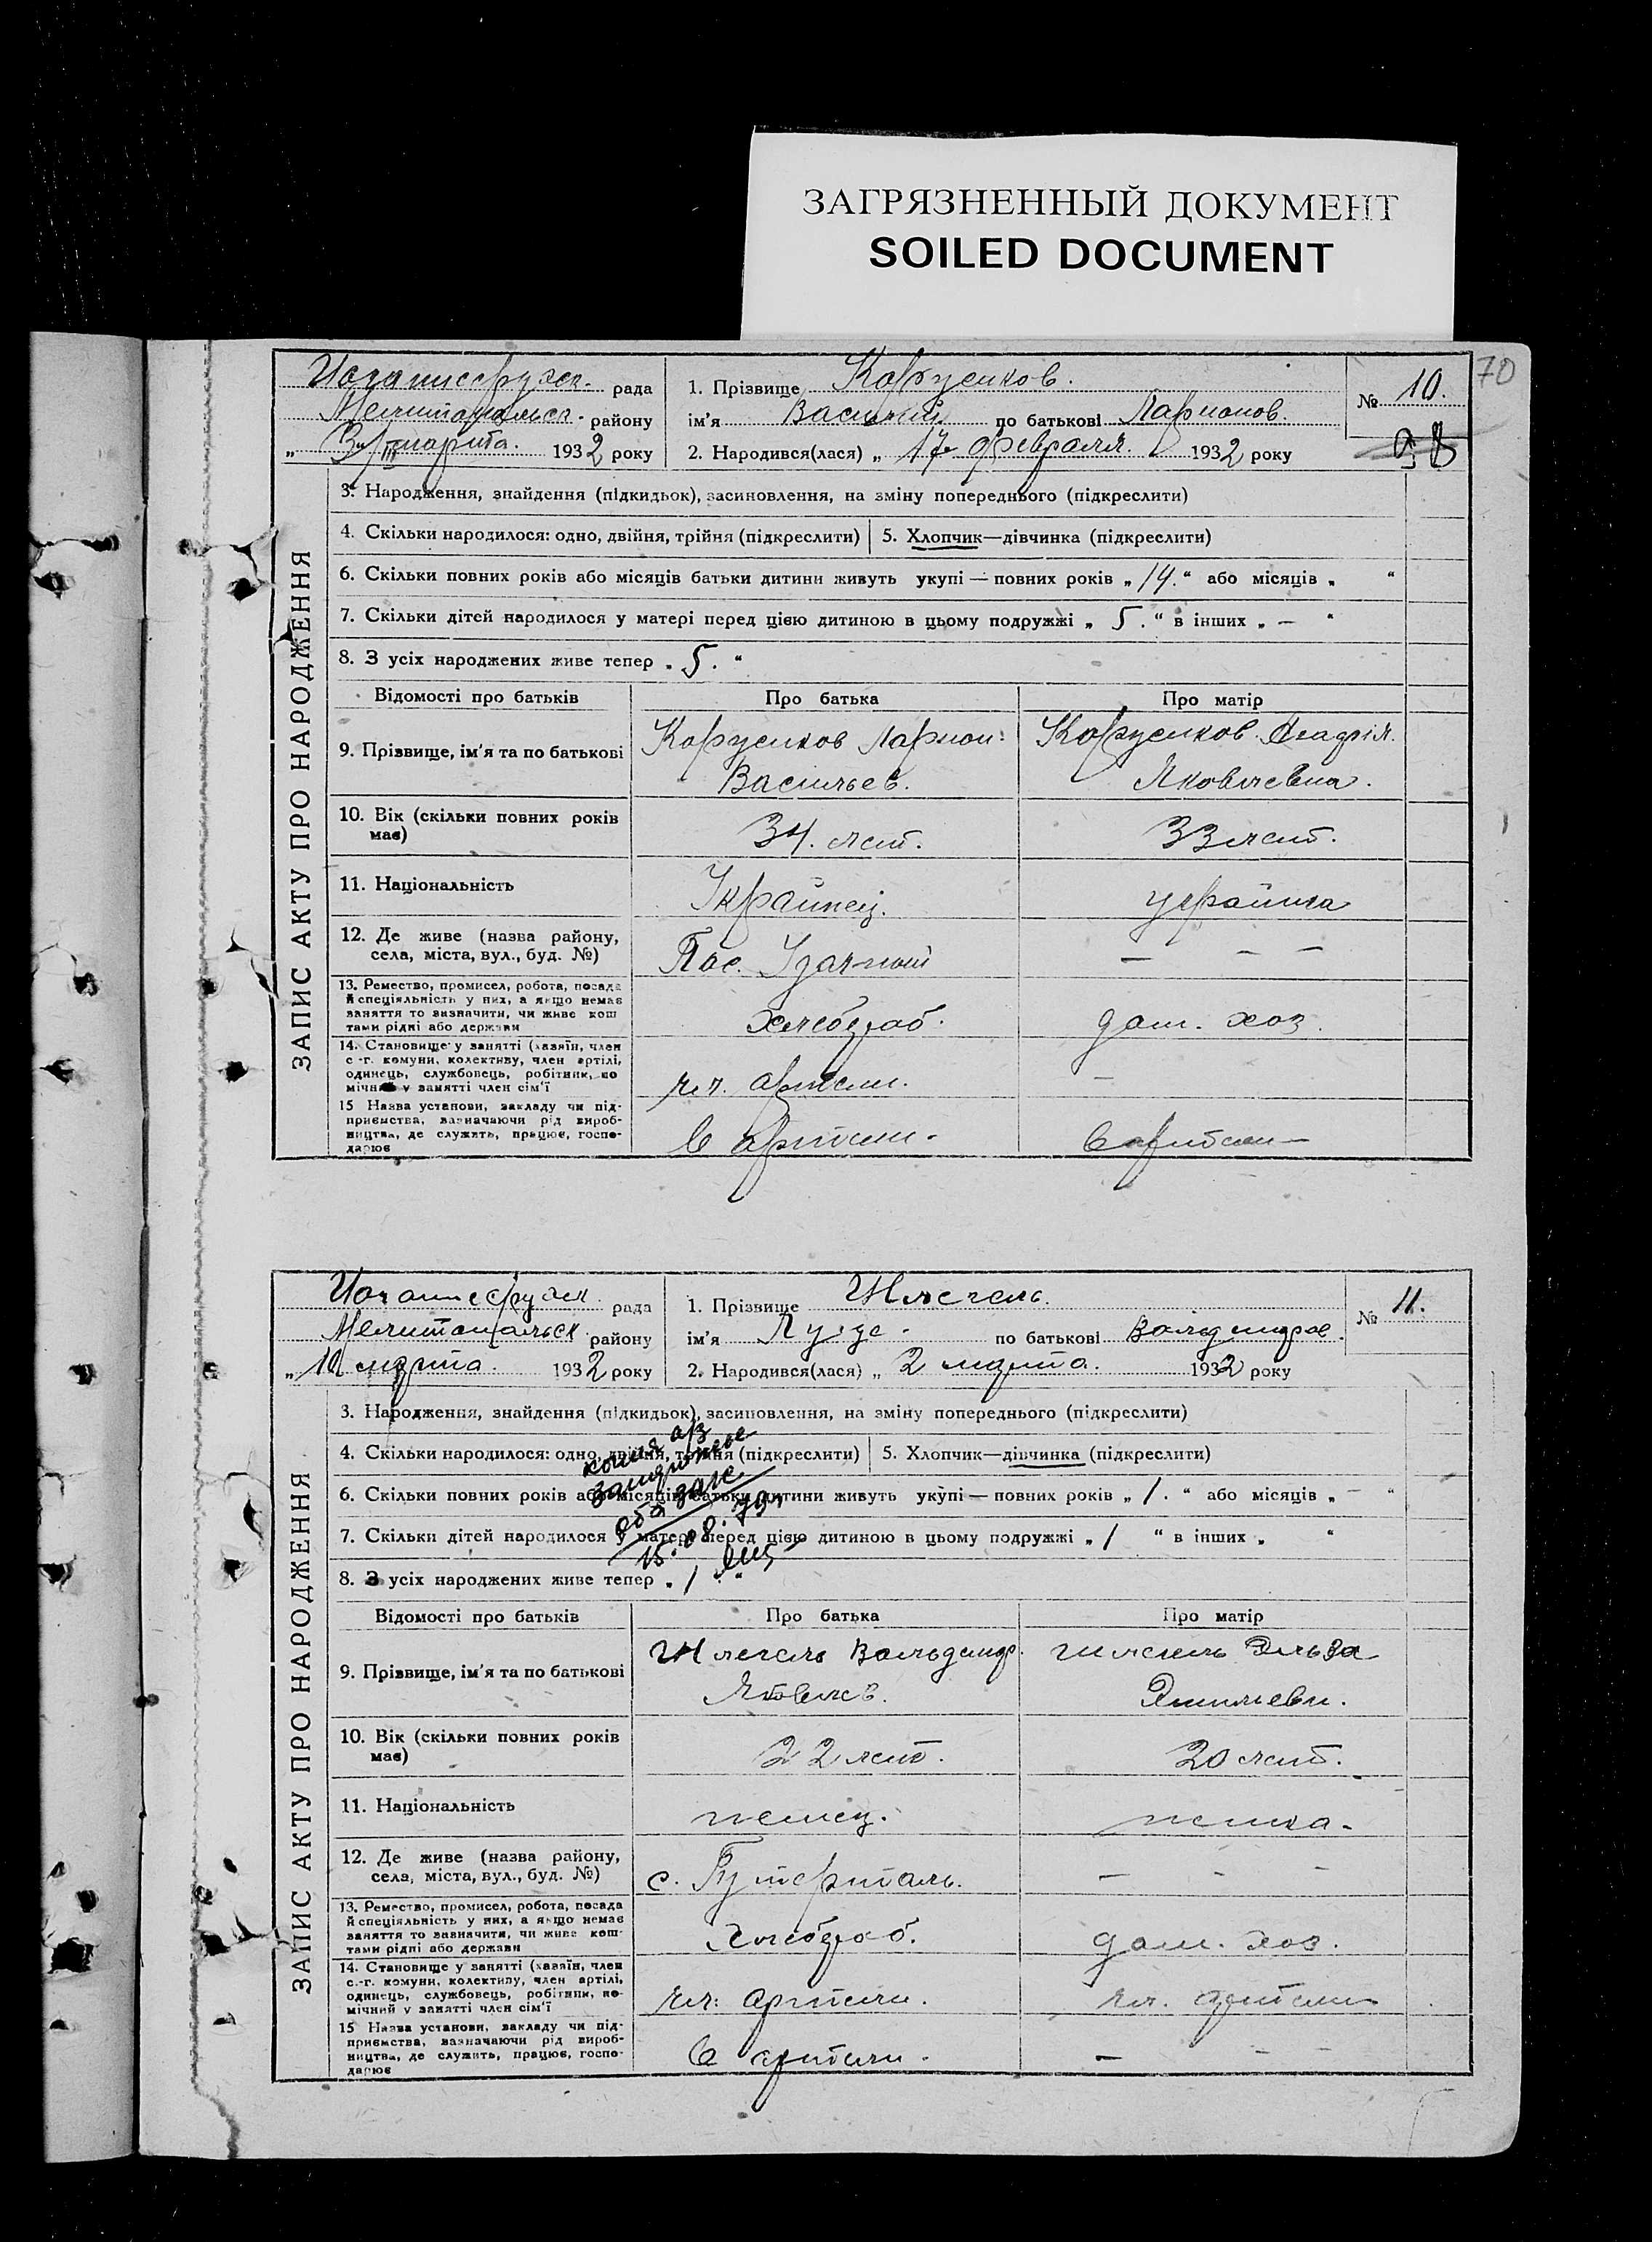 ЗАГРЯЗНЕННЫЙ ДОКУМЕНТ
SOILED DOCUMENT
70
рада
Мелитопольск. району
„ 3/III марта. 1932 року
1. Прізвище
ім'я Василий по батькові Ларионов.
2. Народився(лася) „ 17 февраля. 1932 року
№ 10.
ЗАПИС АКТУ ПРО НАРОДЖЕННЯ
3. Народження, знайдення (підкидьок), засиновлення, на зміну попереднього (підкреслити)
4. Скільки народилося: одно, двійня, трійня (підкреслити)
5. Хлопчик—дівчинка (підкреслити)
6. Скільки повних років або місяців батьки дитини живуть укупі — повних років „ 14. “ або місяців „ “
7. Скільки дітей народилося у матері перед цією дитиною в цьому подружжі „ 5. “ в інших „ — “
8. З усіх народжених живе тепер „ 5. “
Відомості про батьків
Про батька
Про матір
9. Прізвище, ім'я та по батькові
Ларион:
Васильев.
Яковлевна.
10. Вік (скільки повних років
має)
34. лет.
33 лет.
11. Національність
Украйнец.
украйнка
12. Де живе (назва району,
села, міста, вул., буд. №)
Пос. Удачный
— – –
13. Ремество, промисел, робота, посада
й спеціяльність у них, а якщо немає
заняття то зазначити, чи живе кош
тами рідні або держави
хлебороб.
дом. хоз.
14. Становище у занятті (хазяїн, член
с.-г. комуни, колективу, член артілі,
одинець, службовець, робітник, по
мічний у занятті член сім'ї
чл. артели.
—
15 Назва установи, закладу чи під-
приємства, вазначаючи рід вироб-
ництва, де служить, працює, госпо-
дарює
в артели.
в артели —
рада
Мелитопольск. району
„ 10 марта. 1932 року
1. Прізвище Шлегель.
ім'я по батькові Вольдемаров.
2. Народився(лася) „ 2 марта. 1932 року
№ 11.
ЗАПИС АКТУ ПРО НАРОДЖЕННЯ
3. Народження, знайдення (підкидьок), засиновлення, на зміну попереднього (підкреслити)
4. Скільки народилося: одно, двійня, трійня (підкреслити)
5. Хлопчик—дівчинка (підкреслити)
6. Скільки повних років або місяців батьки дитини живуть укупі — повних років „ 1. “ або місяців „ — “
7. Скільки дітей народилося у матері перед цією дитиною в цьому подружжі „ 1 “ в інших „ “
8. З усіх народжених живе тепер „ 1 “
копия а/з
15.08.79
Відомості про батьків
Про батька
Про матір
9. Прізвище, ім'я та по батькові
Шлегель Вольдемар.
Яковлев.
Шлегель Эльза
10. Вік (скільки повних років
має)
22 лет.
20 лет.
11. Національність
немец.
немка.
12. Де живе (назва району,
села, міста, вул., буд. №)
с. Гутерталь.
— - –
13. Ремество, промисел, робота, посада
й спеціяльність у них, а якщо немає
заняття то зазначити, чи живе кош-
тами рідні або держави
Хлебороб.
дом. хоз.
14. Становище у занятті (хазяїн, член
с.-г. комуни, колективу, член артілі,
одинець, службовець, робітник, по-
мічний у занятті член сім'ї
чл. артели.
чл. артели
15 Назва установи, закладу чи під-
приємства, вазначаючи рід вироб-
ництва, де служить, працює, госпо-
дарює
в артели.
— - –